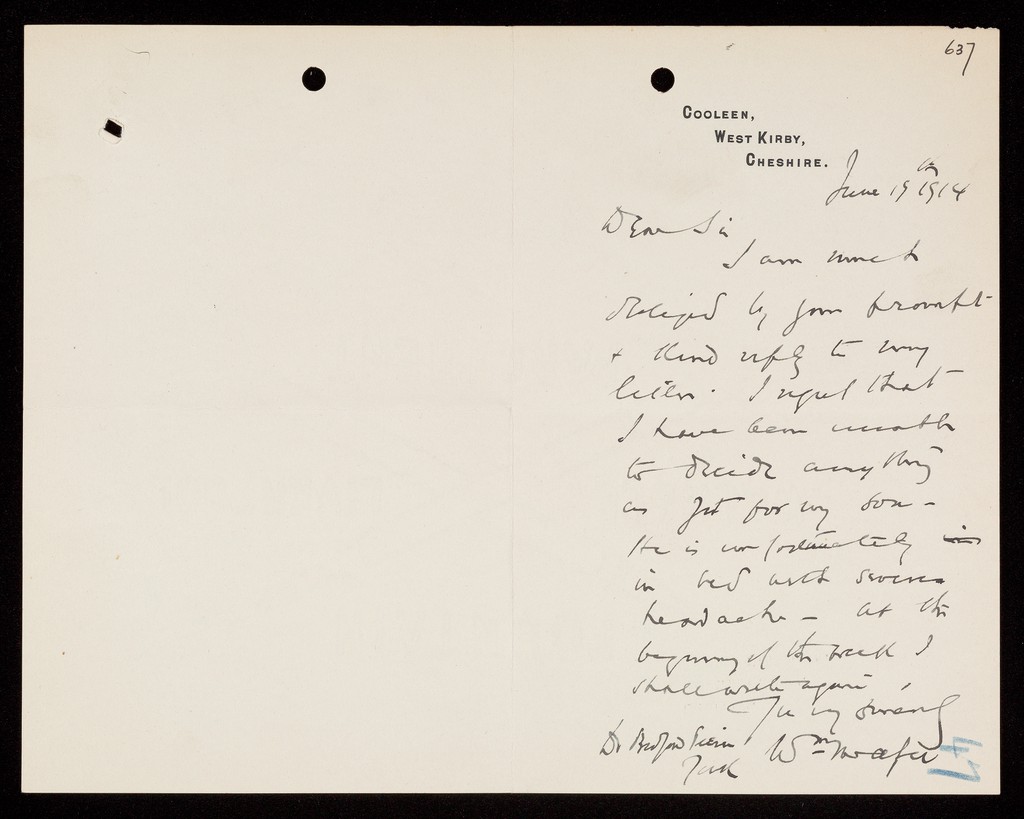 637
COOLEEN,
WEST KIRBY,
CHESHIRE.
June 19th 1914
Dear Sir
I am much
obliged by your prompt
& kind reply to my
letter. I regret that
I have been unable
to decide anything
as yet for my son –
He is unfortunately in
in bed with severe
headache – at the
beginning of the week I
shall write again
Yrs very sincerely
Wm
Dr Bedford Pierce
York